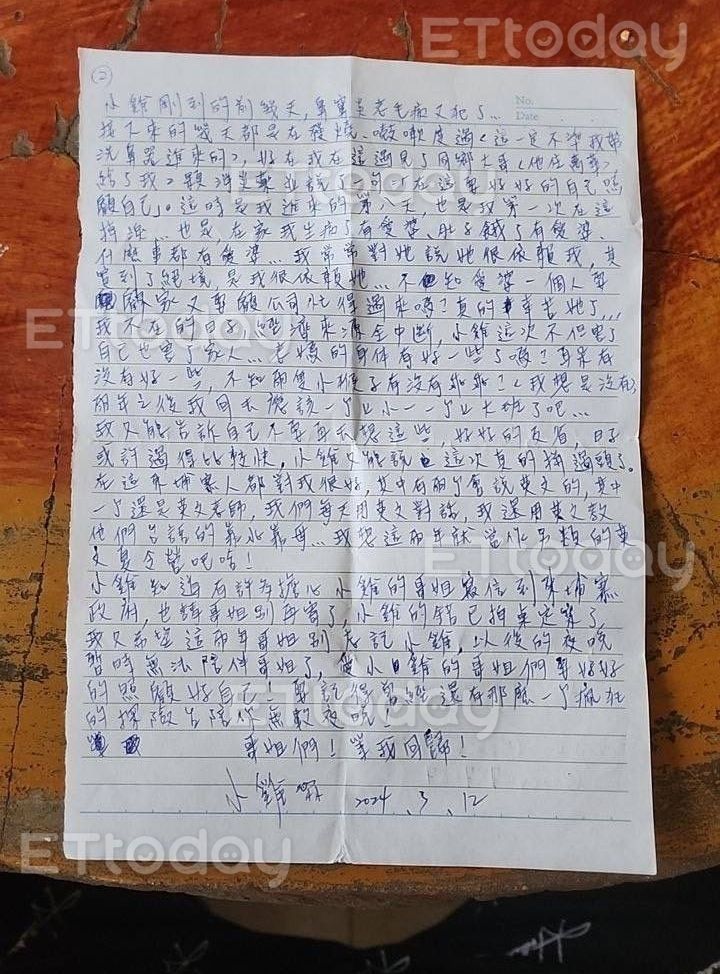 ETtoday
②
No.
Date
小鎧剛到的前幾天,鼻竇炎老毛病又犯了...
接下來的幾天都是在發燒、咳嗽度過
洗鼻器進來的),好在我在這遇見了同鄉大哥
給了我2顆消炎藥並說了一句「在這要好好的自己照
顧自己」。這時是我進來的第八天,也是我第一次在這
也是,在家我生病了有愛婆、肚子餓了有愛婆、
什麼事都有愛婆...我常常對她說她很依賴我,其
實到了絕境,是我很依賴她...不知愛婆一個人要
顧家又要顧公司忙得過來嗎?真的辛苦她了...
我不在的日子,經濟來源全中斷,小鎧這次不但害了
自己也害了家人...老媽的身體有好一些了嗎?耳朵有
沒有好一些,不知兩隻小猴子有沒有乖乖?(我想是沒有)
兩年之後我回去應該一個小一一個大班了吧...
我只能告訴自己不要再去想這些,好好的反省,日子
或許過得比較快,小鎧只能說這次真的掉過頭了。
在這柬埔寨人都對我很好,其中有兩個會說英文的,其中
一個還是英文老師,我們每天用英文對話,我還用英文教
他們台語的靠北靠母...我想這兩年就當作另類的英
文夏令營吧哈!
小鎧知道有許多擔心小鎧的哥姐寫信到柬埔寨
政府,也請哥姐別再寄了,小鎧的錯已拍桌定案了,
我只希望這兩年哥姐別忘記小鎧,以後的夜晚
暫時無法陪伴哥姐了,愛小鎧的哥姐們要好好
的照顧好自己!要記得曾經還有那麼一個瘋狂
的探險台陪你無數夜晚!
哥姐們!等我回歸!
小鎧 2024.3.12
ETtoday
ETtoday
ETtoday
ETtoday
ETtoday